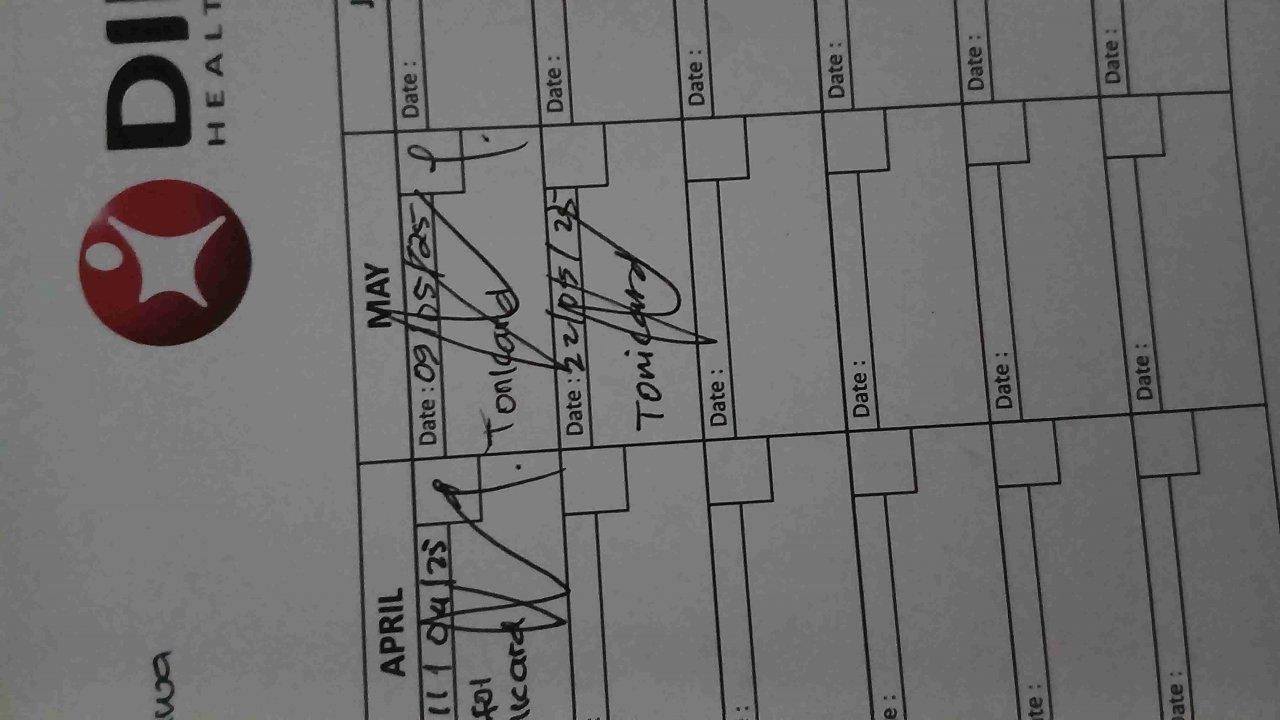 DI
HEALT
wa
APRIL
MAY
J
11 04/25
Date : 09/05/25
Date :
Tonicard
Date : 22/05/25
Date :
Tonicard
Date :
Date :
Date :
Date :
te :
Date :
Date :
ate :
Date :
Date :